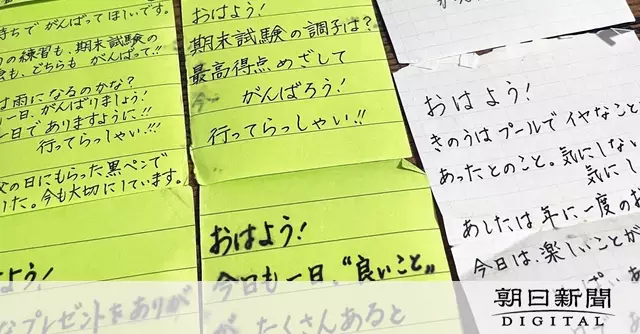 持ちで がんばってほしいです。
の練習も、期末試験の
も、どちらも がんばって!!
は雨になるのかな?
一日、がんばりましょう!
一日でありますように!!
行ってらっしゃい!!!
父の日にもらった黒ペンで
した。今も大切にしています。
う!
なプレゼントをありが
おはよう!
期末試験の調子は?
最高得点めざして
がんばろう!
行ってらっしゃい!!
おはよう!
今日も一日、“良いこと„
が たくさんあると
おはよう!
きのうはプールでイヤなこと
あったとのこと。気にしない
気にし
あしたは年に一度のお
今日は、楽しいことが
朝日新聞
DIGITAL